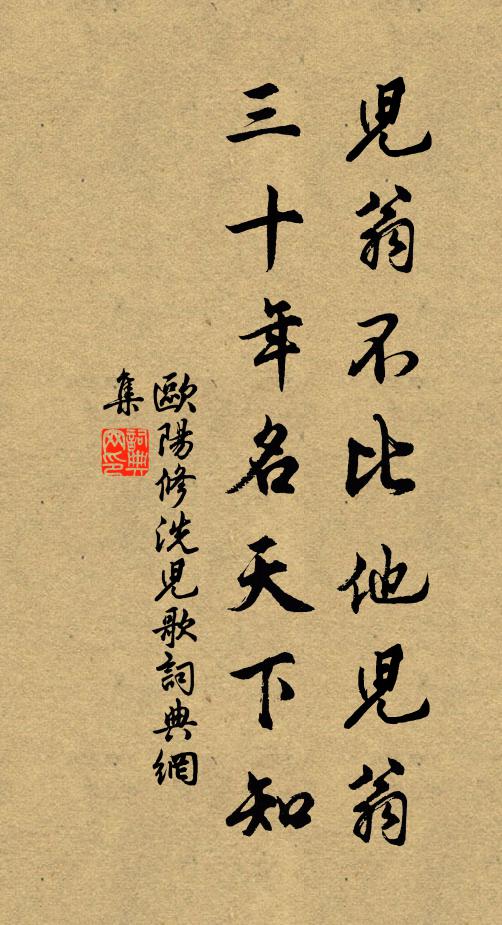 兒翁不比他兒翁
三十年名天下知
歐陽修洗兒歌詞典網
集
詞典
网印